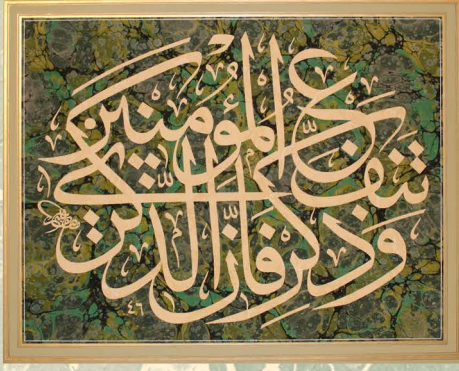 وَذَكِّرْ فَإِنَّ الذِّكْرَىٰ تَنْفَعُ الْمُؤْمِنِينَ
٤٦